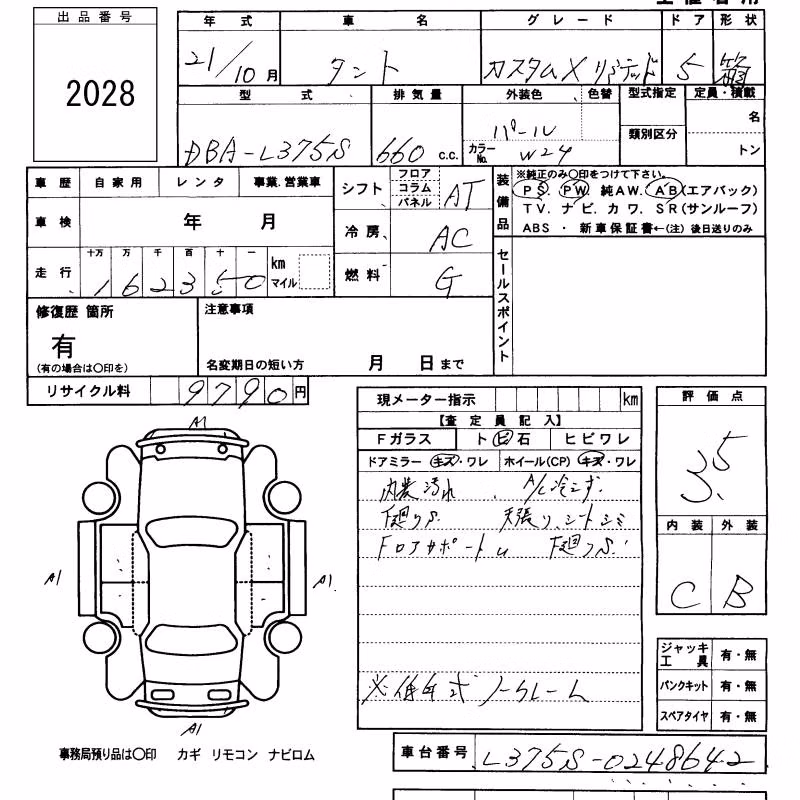 出品番号
2028
年式 車名 グレード ドア 形状
21/10月 タント カスタムX リミテッド 5 箱
型式 排気量 外装色 色替 型式指定 定員・積載
類別区分 名
DBA-L375S 660 c.c. パール カラーNo. W24 トン
車歴 自家用 レンタ 事業.営業車
車検 年 月
走行 十万 万 千 百 十 一
162350 km マイル
シフト フロア コラム パネル AT
冷房 AC
燃料 G
装備品 ※純正のみ〇印をつけて下さい。
PS. PW. 純AW. AB(エアバック)
TV. ナビ. カワ. SR(サンルーフ)
ABS ・ 新車保証書←(注) 後日送りのみ
セールスポイント
修復歴 箇所
有
(有の場合は〇印を)
注意事項
名変期日の短い方 月 日まで
リサイクル料 9790円
現メーター指示 km
【査定員記入】
Fガラス ト ビ 石 ヒビワレ
ドアミラー キズ・ワレ ホイール(CP) キズ・ワレ
内装汚れ、A/C冷えず.
下廻りS. 天張り、シートシミ
フロアサポートU 下廻りS.
※低年式 ノークレーム
評価点
3.5
内装 外装
C B
ジャッキ工具 有・無
パンクキット 有・無
スペアタイヤ 有・無
A1
A1
A1
A1
事務局預り品は〇印 カギ リモコン ナビロム
車台番号 L375S-0248642